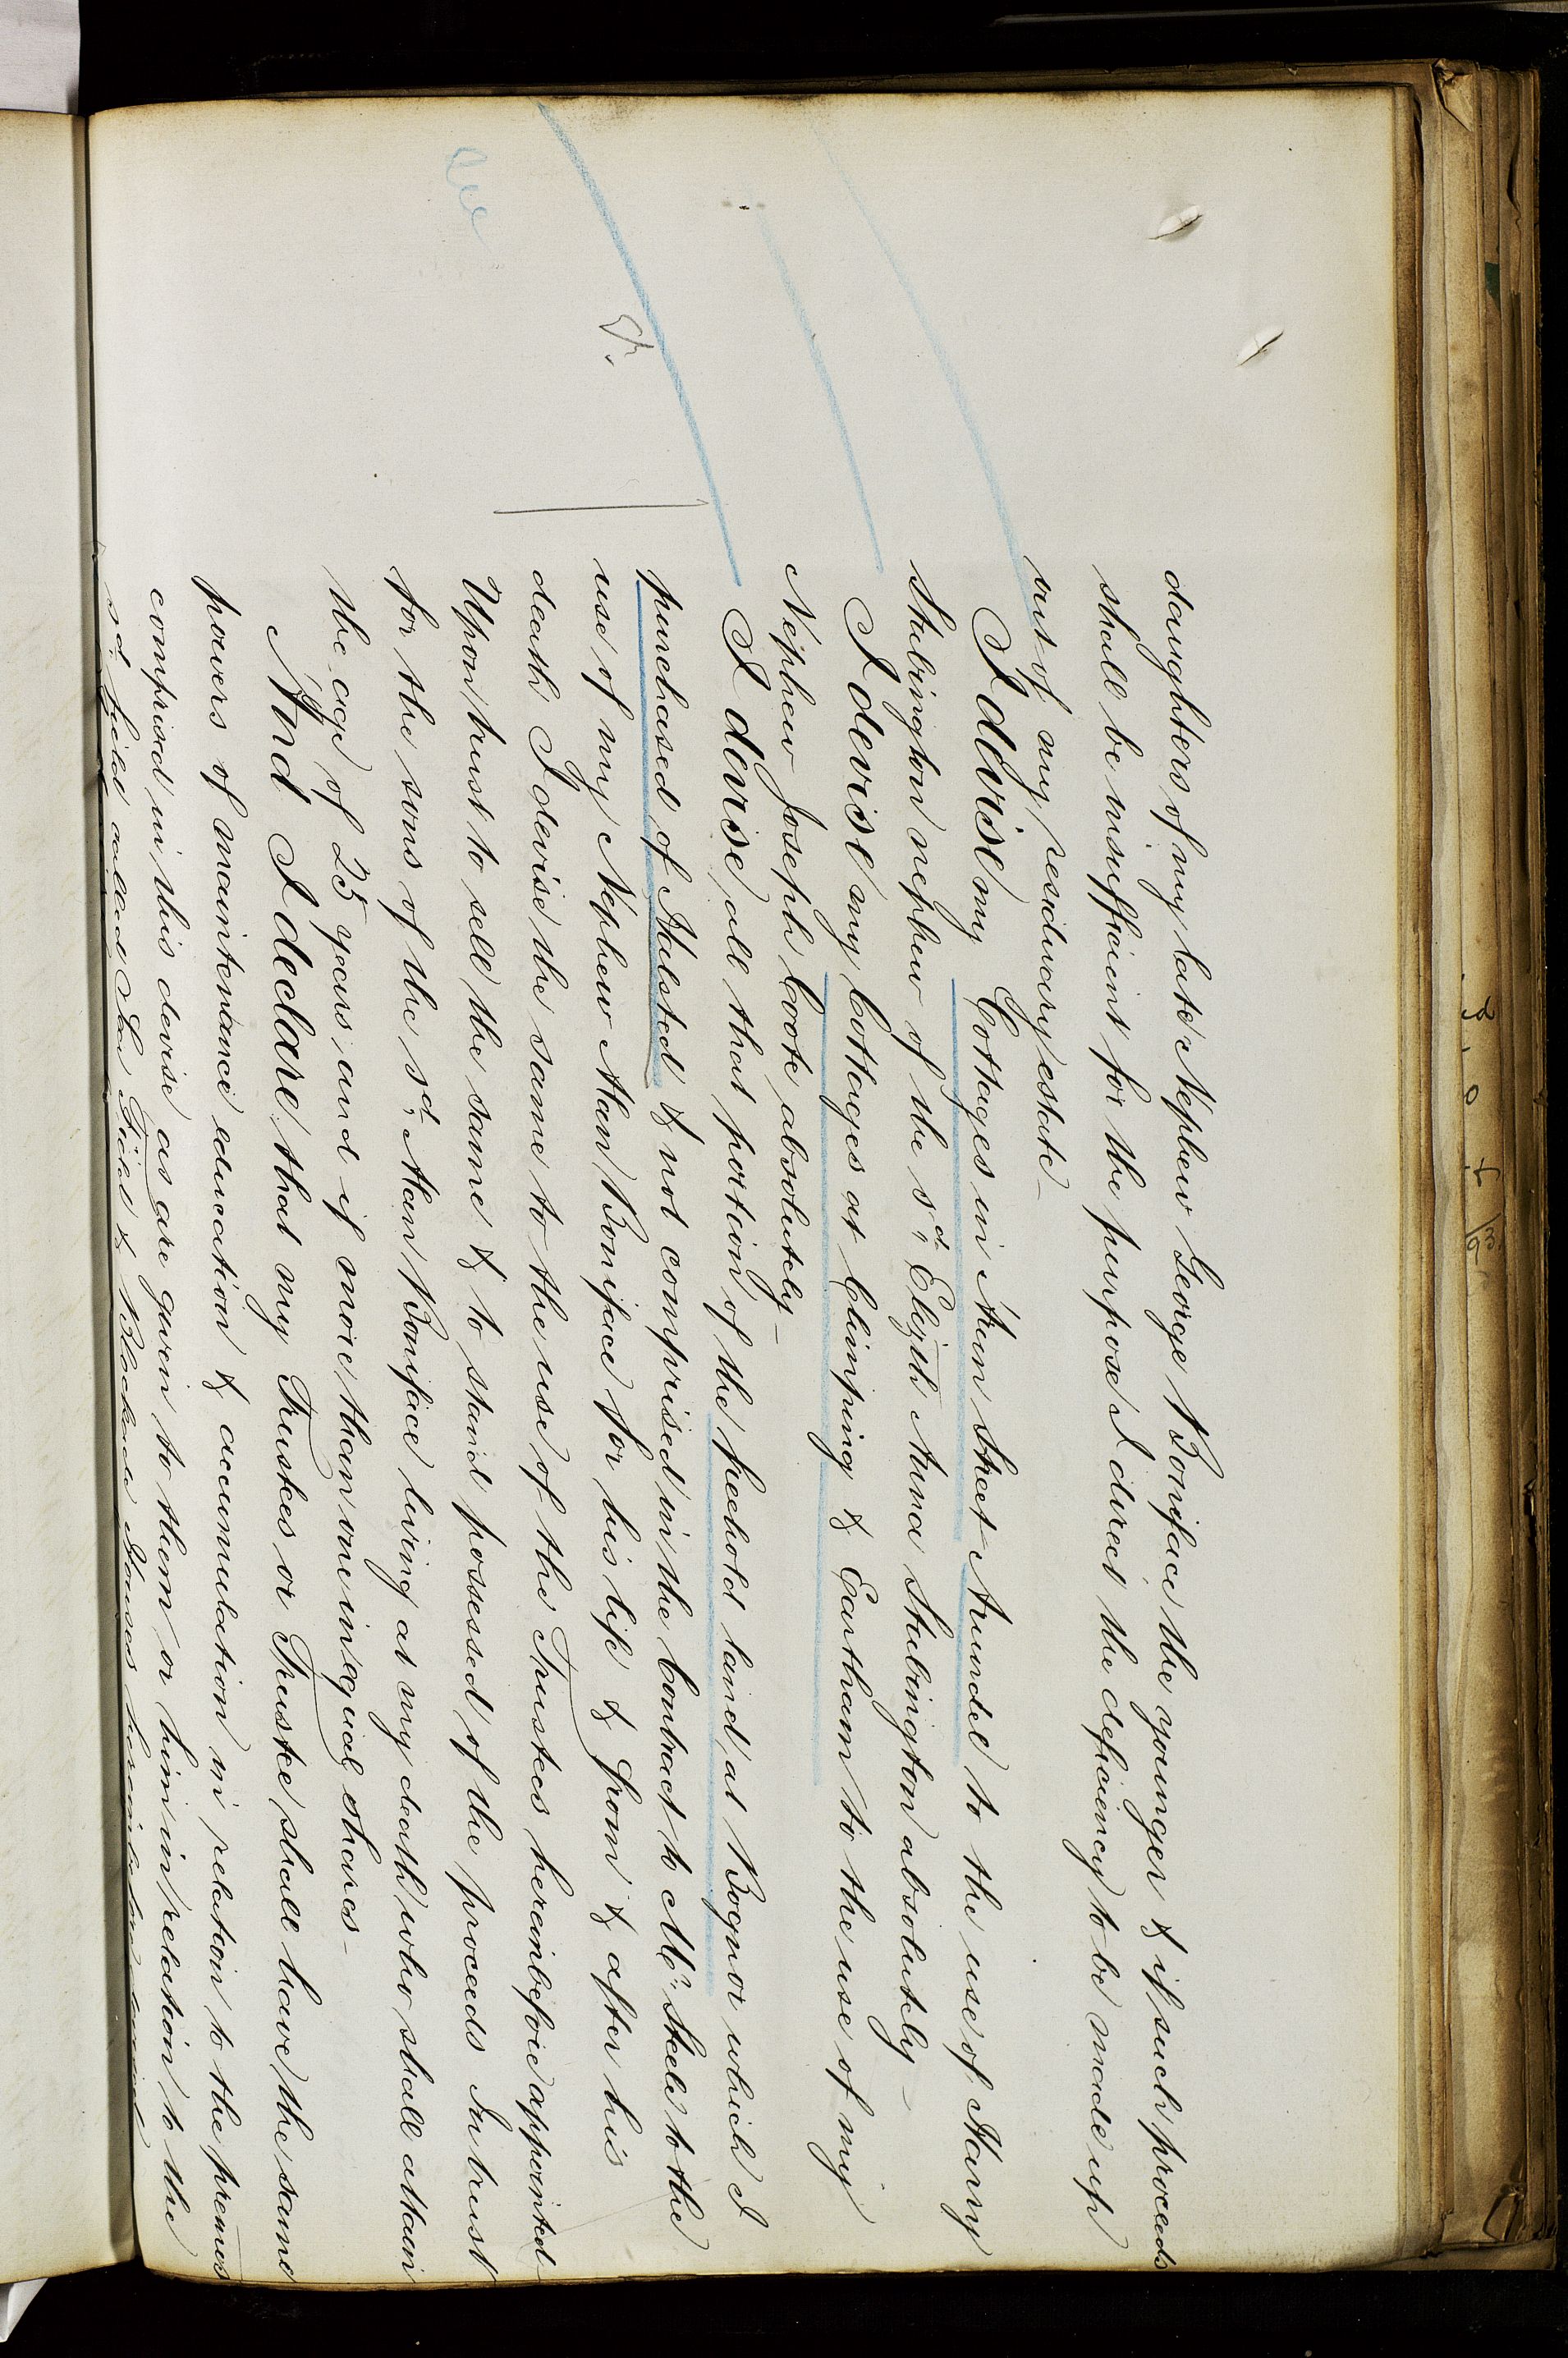 daughters of my late Nephew George Boniface the younger & if such proceeds
shall be insufficient for the purpose I direct the deficiency to be made up
out of my residuary estate –
I devise my Cottages in Arun Street Arundel to the use of Harry
Stubington nephew of the sd. Elizth Anna Stubington absolutely –
I devise my Cottages at Climping & Eartham to the use of my
Nephew Joseph Coote absolutely –
I devise all that portion of the freehold land at Bognor which I
purchased of Halsted & not comprised in the Contract to Mr. Steele to the
use of my Nephew Alan Boniface for his life & from & after his
death I devise the same to the use of the Trustees hereinbefore appointed
Upon trust to sell the same & to stand possessed of the proceeds In trust
for the sons of the sd. Alan Boniface living at my death who shall attain
the age of 25 years, and if more than one in equal shares –
And I declare that my Trustees or Trustee shall have the same
powers of maintenance education & accumulation in relation to the premes
comprised in this devise as are given to them or him in relation to the
sd. field called Sea Field & Blockade Houses hereinbefore